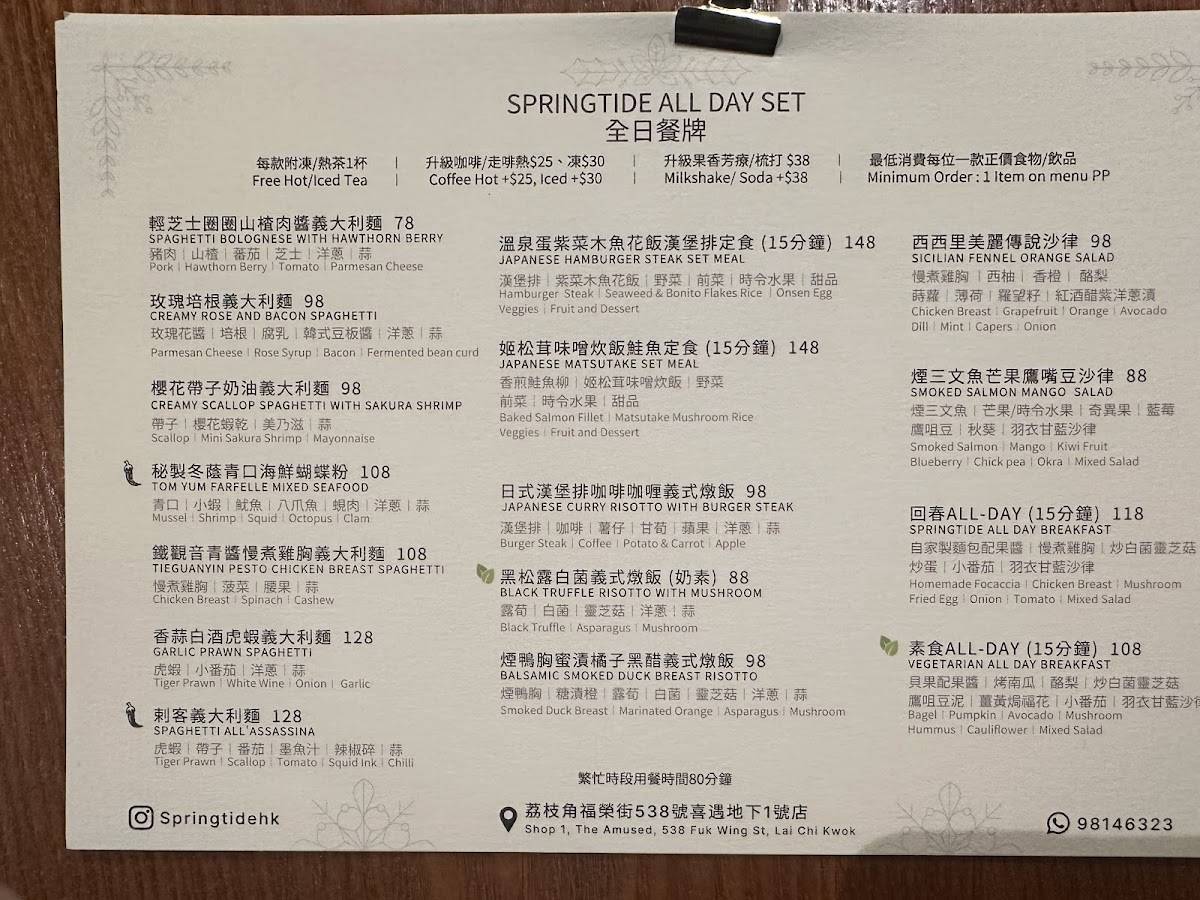 SPRINGTIDE ALL DAY SET
全日餐牌
每款附凍/熱茶1杯 | 升級咖啡/走啡熱$25、凍$30 | 升級果香芳療/梳打 $38 | 最低消費每位一款正價食物/飲品
Free Hot/Iced Tea | Coffee Hot +$25, Iced +$30 | Milkshake/ Soda +$38 | Minimum Order : 1 Item on menu PP
輕芝士圈圈山楂肉醬義大利麵 78
SPAGHETTI BOLOGNESE WITH HAWTHORN BERRY
豬肉 | 山楂 | 蕃茄 | 芝士 | 洋蔥 | 蒜
Pork | Hawthorn Berry | Tomato | Parmesan Cheese
玫瑰培根義大利麵 98
CREAMY ROSE AND BACON SPAGHETTI
玫瑰花醬 | 培根 | 腐乳 | 韓式豆板醬 | 洋蔥 | 蒜
Parmesan Cheese | Rose Syrup | Bacon | Fermented bean curd
櫻花帶子奶油義大利麵 98
CREAMY SCALLOP SPAGHETTI WITH SAKURA SHRIMP
帶子 | 櫻花蝦乾 | 美乃滋 | 蒜
Scallop | Mini Sakura Shrimp | Mayonnaise
秘製冬蔭青口海鮮蝴蝶粉 108
TOM YUM FARFELLE MIXED SEAFOOD
青口 | 小蝦 | 魷魚 | 八爪魚 | 蜆肉 | 洋蔥 | 蒜
Mussel | Shrimp | Squid | Octopus | Clam
鐵觀音青醬慢煮雞胸義大利麵 108
TIEGUANYIN PESTO CHICKEN BREAST SPAGHETTI
慢煮雞胸 | 菠菜 | 腰果 | 蒜
Chicken Breast | Spinach | Cashew
香蒜白酒虎蝦義大利麵 128
GARLIC PRAWN SPAGHETTI
虎蝦 | 小番茄 | 洋蔥 | 蒜
Tiger Prawn | White Wine | Onion | Garlic
刺客義大利麵 128
SPAGHETTI ALL'ASSASSINA
虎蝦 | 帶子 | 番茄 | 墨魚汁 | 辣椒碎 | 蒜
Tiger Prawn | Scallop | Tomato | Squid Ink | Chilli
溫泉蛋紫菜木魚花飯漢堡排定食 (15分鐘) 148
JAPANESE HAMBURGER STEAK SET MEAL
漢堡排 | 紫菜木魚花飯 | 野菜 | 前菜 | 時令水果 | 甜品
Hamburger Steak | Seaweed & Bonito Flakes Rice | Onsen Egg
Veggies | Fruit and Dessert
姬松茸味噌炊飯鮭魚定食 (15分鐘) 148
JAPANESE MATSUTAKE SET MEAL
香煎鮭魚柳 | 姬松茸味噌炊飯 | 野菜
前菜 | 時令水果 | 甜品
Baked Salmon Fillet | Matsutake Mushroom Rice
Veggies | Fruit and Dessert
日式漢堡排咖啡咖喱義式燉飯 98
JAPANESE CURRY RISOTTO WITH BURGER STEAK
漢堡排 | 咖啡 | 薯仔 | 甘荀 | 蘋果 | 洋蔥 | 蒜
Burger Steak | Coffee | Potato & Carrot | Apple
黑松露白菌義式燉飯 (奶素) 88
BLACK TRUFFLE RISOTTO WITH MUSHROOM
露荀 | 白菌 | 靈芝菇 | 洋蔥 | 蒜
Black Truffle | Asparagus | Mushroom
煙鴨胸蜜漬橘子黑醋義式燉飯 98
BALSAMIC SMOKED DUCK BREAST RISOTTO
煙鴨胸 | 糖漬橙 | 露荀 | 白菌 | 靈芝菇 | 洋蔥 | 蒜
Smoked Duck Breast | Marinated Orange | Asparagus | Mushroom
西西里美麗傳說沙律 98
SICILIAN FENNEL ORANGE SALAD
慢煮雞胸 | 西柚 | 香橙 | 酪梨
蒔蘿 | 薄荷 | 羅望籽 | 紅酒醋紫洋蔥漬
Chicken Breast | Grapefruit | Orange | Avocado
Dill | Mint | Capers | Onion
煙三文魚芒果鷹嘴豆沙律 88
SMOKED SALMON MANGO SALAD
煙三文魚 | 芒果/時令水果 | 奇異果 | 藍莓
鷹咀豆 | 秋葵 | 羽衣甘藍沙律
Smoked Salmon | Mango | Kiwi Fruit
Blueberry | Chick pea | Okra | Mixed Salad
回春ALL-DAY (15分鐘) 118
SPRINGTIDE ALL DAY BREAKFAST
自家製麵包配果醬 | 慢煮雞胸 | 炒白菌靈芝菇
炒蛋 | 小番茄 | 羽衣甘藍沙律
Homemade Focaccia | Chicken Breast | Mushroom
Fried Egg | Onion | Tomato | Mixed Salad
素食ALL-DAY (15分鐘) 108
VEGETARIAN ALL DAY BREAKFAST
貝果配果醬 | 烤南瓜 | 酪梨 | 炒白菌靈芝菇
鷹咀豆泥 | 薑黃焗椰花 | 小番茄 | 羽衣甘藍沙律
Bagel | Pumpkin | Avocado | Mushroom
Hummus | Cauliflower | Mixed Salad
繁忙時段用餐時間80分鐘
Springtidehk
荔枝角福榮街538號喜遇地下1號店
Shop 1, The Amused, 538 Fuk Wing St, Lai Chi Kwok
98146323